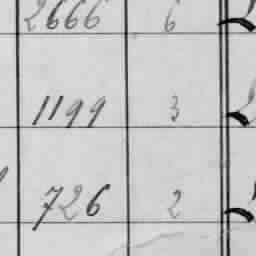 2666 6
1199 3
726 2